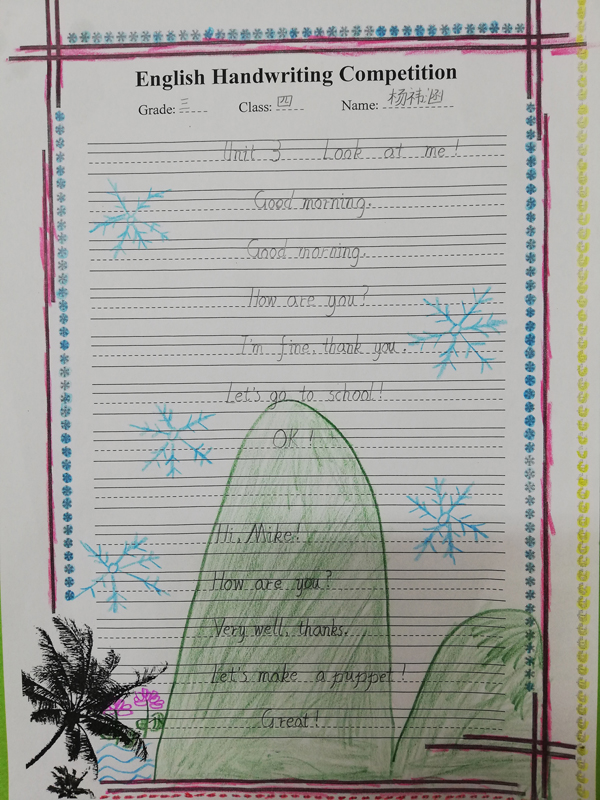 English Handwriting Competition
Grade: 三 Class: 四 Name: 杨祎涵
Unit 3 Look at me!
Good morning.
Good morning.
How are you?
I'm fine, thank you.
Let's go to school!
OK!
Hi, Mike!
How are you?
Very well, thanks.
Let's make a puppet!
Great!